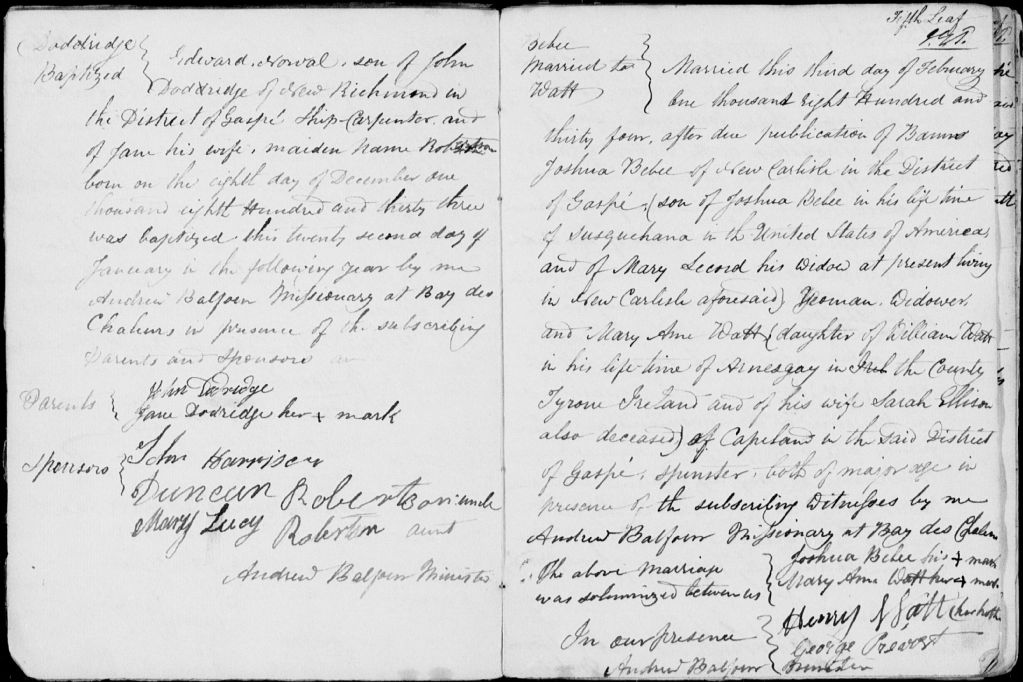 Doddridge
Baptized
Edward. Norval. son of John
Doddridge of New Richmond in
the District of Gaspé Ship-Carpenter, and
of Jane his wife, maiden name
born on the eighth day of December one
thousand eighth Hundred and thirty three
was baptized this twenty second day of
January in the following year by me
Andrew Balfour Missionary at Bay des
Chaleurs in presence of the subscribing
Parents and Sponsors
Parents
John
Jane Dodridge her + mark
Sponsors
John Harrison
Duncan Robertson uncle
Mary Lucy Robertson aunt
Andrew Balfour Minister
Fifth Leaf
Bebee
Married to
Watt
Married this third day of February
one thousand eight Hundred and
thirty four, after due publication of Banns
Joshua Bebee of New Carlisle in the District
of Gaspé, (son of Joshua Bebee in his life time
of Susquehana in the United States of America,
and of Mary Secord his Widow at present living
in New Carlisle aforesaid) Yeoman. Widower,
and Mary Anne Watt (daughter of William Watt
in his life-time of in the County
Tyrone Ireland and of his wife Sarah Ellison
also deceased) of Capeland in the said District
of Gaspé, spinster, both of major age in
presence of the subscribing Witnesses by me
Andrew Balfour Missionary at Bay des Chaleurs
The above marriage
was solemnized between us
Joshua Bebee his + mark
Mary Anne Watt her + mark
In our presence
Henry Watt
George Prevost
Andrew Balfour